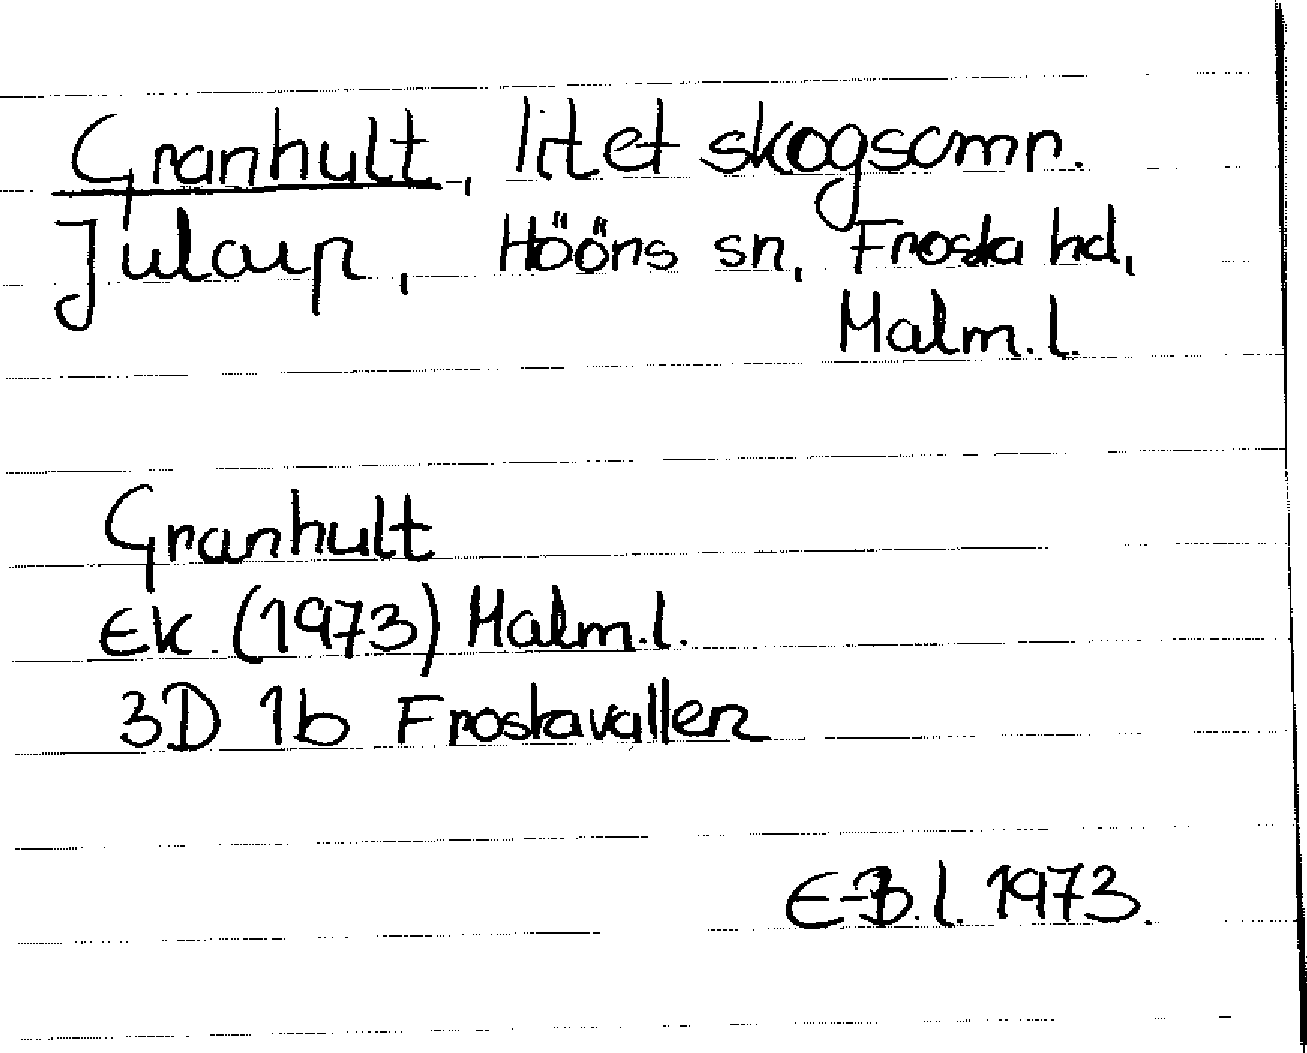 Granhult, litet skogsomr.
Jularp, Hööns sn, Frosta hd,
Malm.l.
Granhult
Ek. (1973) Malm.l.
3D 1b Frostavallen
E-B.l. 1973.